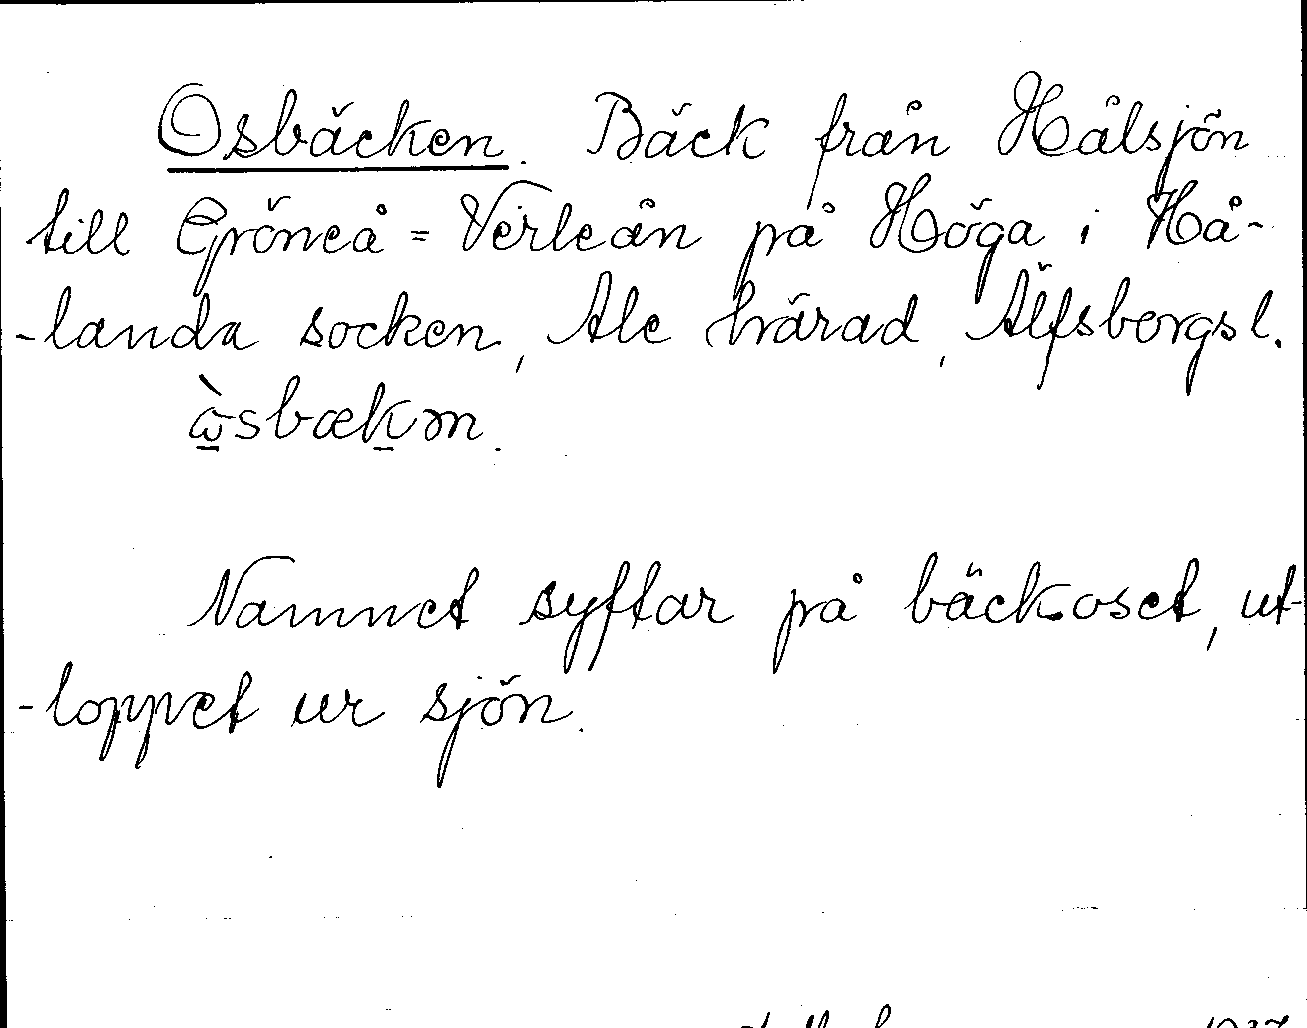 Osbäcken. Bäck från Hålsjön
till Gröneå = Verleån på Höga i Hå-
-landa socken, Ale härad, Älfsbergsl.
ὼsbækən.
Namnet syftar på bäckoset, ut-
-loppet ur sjön.